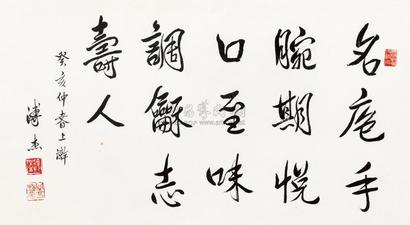 名庖手
腕期悦
口至味
調龢志
壽人
癸亥仲春上澣
溥杰